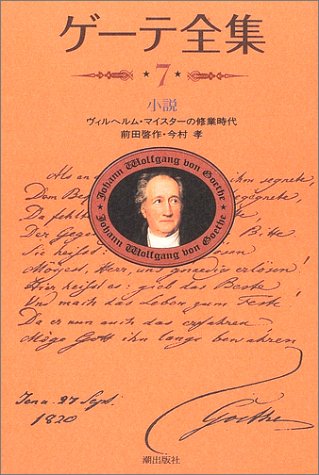 ゲーテ全集
7
小説
ヴィルヘルム・マイスターの修業時代
前田啓作・今村 孝
Johann Wolfgang von Goethe
Johann Wolfgang von Goethe
Als an
ihn segnete,
Dem
Da
Der
Bitte
Sie
lösen
Herr, und gnaedig erlösen!
Hier heisst es: gieb das Beste
Und mach das Leben zum Feste!
Da er nun auch das erfahren,
Möge Gott ihn lange bewahren
Jena 27 Sept.
1820
Goethe
潮出版社